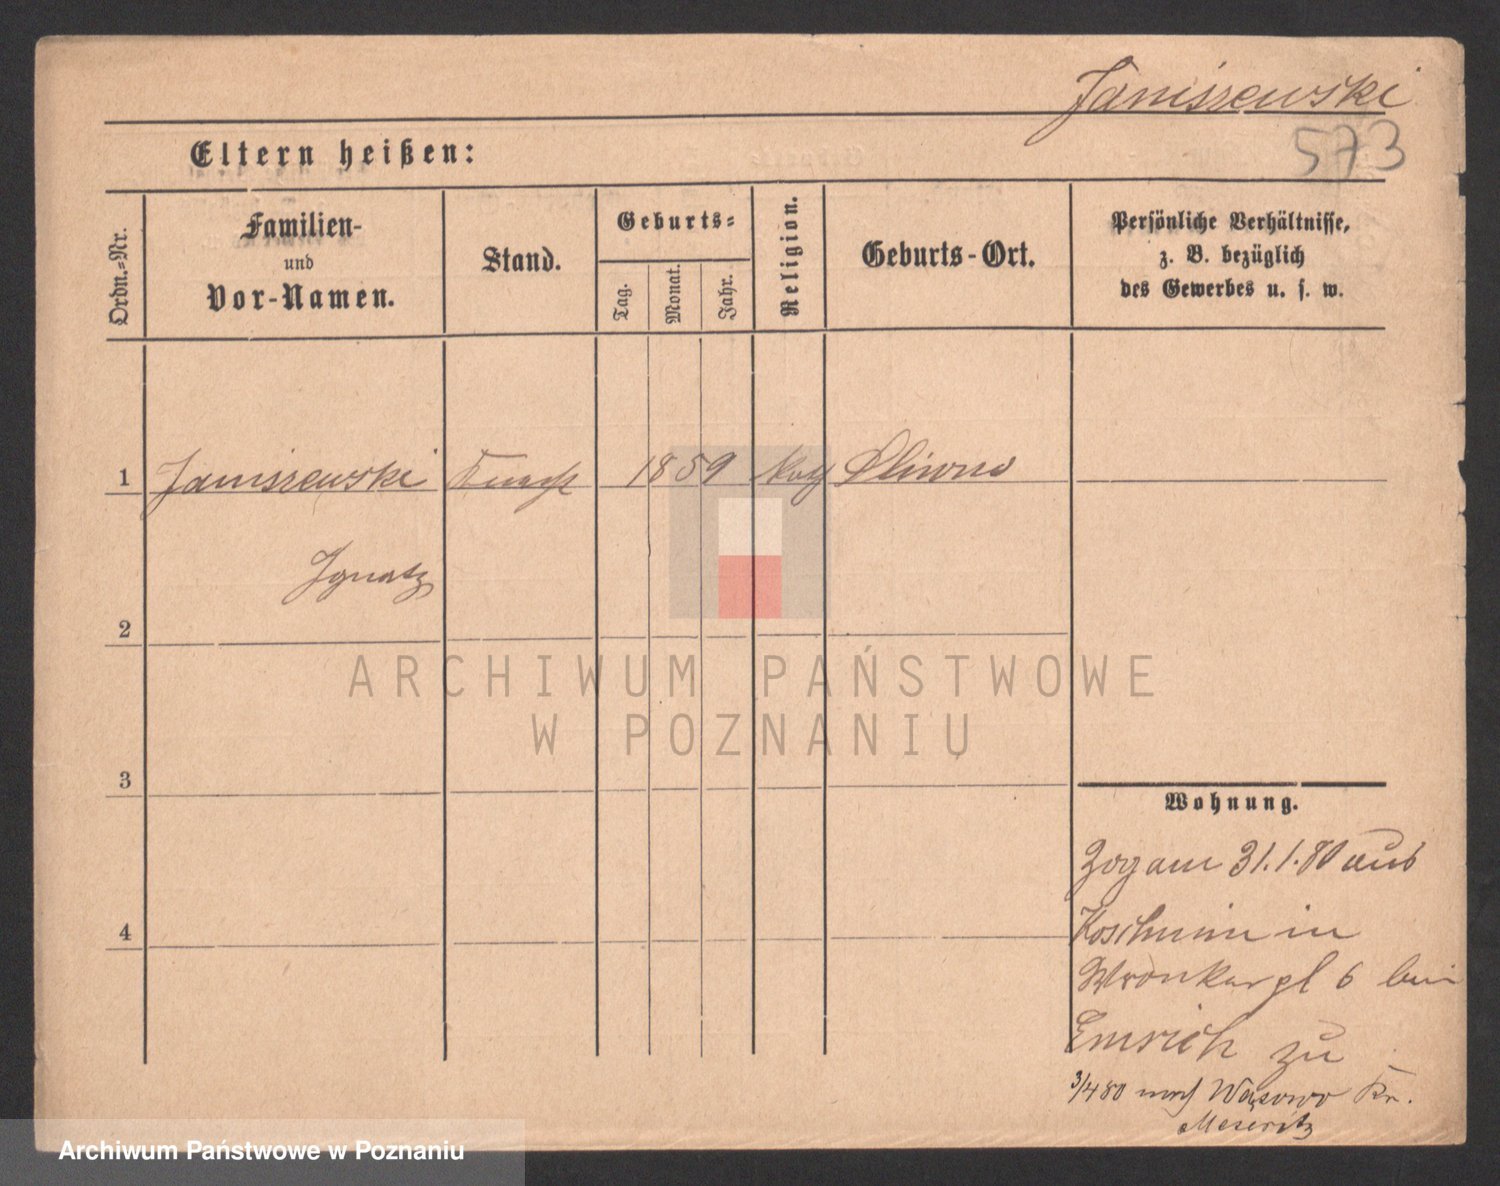 Janiszewski
573
Eltern heißen:
Ordn.-Nr.
Familien-
und
Vor-Namen.
Stand.
Geburts-
Tag.
Monat.
Jahr.
Religion.
Geburts-Ort.
Persönliche Verhältnisse,
z. B. bezüglich
des Gewerbes u. s. w.
1 Janiszewski 1859 Kath
Ignatz
2
3
4
Wohnung.
Zog am 31.1.80 aus
Koschmin in
Wronkerpl 6 bei
Emrich zu
3/4 80 nach Wąsowo Kr.
Meseritz
ARCHIWUM PAŃSTWOWE
W POZNANIU
Archiwum Państwowe w Poznaniu